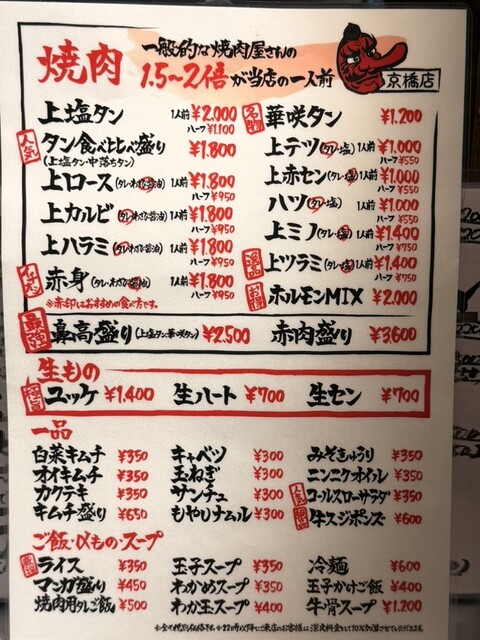 焼肉
一般的な焼肉屋さんの
1.5〜2倍が当店の一人前
京橋店
上塩タン 1人前 ¥2,000
ハーフ ¥1,100
人気 タン食べ比べ盛り ¥1,800
(上塩タン・中落ちタン)
上ロース(タレ・わさび醤油) 1人前 ¥1,800
ハーフ ¥950
上カルビ(タレ・わさび醤油) 1人前 ¥1,800
ハーフ ¥950
上ハラミ(タレ・わさび醤油) 1人前 ¥1,800
ハーフ ¥950
イチバン 赤身(タレ・わさび醤油) 1人前 ¥1,800
ハーフ ¥950
※赤印はおすすめの食べ方です。
名物 華咲タン ¥1,200
上テツ(タレ・塩) 1人前 ¥1,000
ハーフ ¥550
上赤セン(タレ・塩) 1人前 ¥1,000
ハーフ ¥550
ハツ(タレ・塩) 1人前 ¥1,000
ハーフ ¥550
上ミノ(タレ・塩) 1人前 ¥1,400
ハーフ ¥750
逸品 上ツラミ(タレ・塩) 1人前 ¥1,400
ハーフ ¥750
お得 ホルモンMIX ¥2,000
最強 最高盛り(上塩タン・華咲タン) ¥2,500 赤肉盛り ¥3,600
生もの
極旨 ユッケ ¥1,400 生ハート ¥700 生セン ¥700
一品
白菜キムチ ¥350 キャベツ ¥300 みそきゅうり ¥350
オイキムチ ¥350 玉ねぎ ¥300 ニンニクオイル ¥350
カクテキ ¥350 サンチュ ¥300 人気 コールスローサラダ ¥350
キムチ盛り ¥650 もやしナムル ¥300 牛スジポンズ ¥600
ご飯・〆もの・スープ
厳選 ライス ¥350 玉子スープ ¥350 冷麺 ¥600
マンガ盛り ¥450 わかめスープ ¥350 玉子かけご飯 ¥400
焼肉用タレご飯 ¥500 わか玉スープ ¥400 牛骨スープ ¥1,200
※全て税別価格です。※22時以降にご来店のお客様には深夜料金として10%加算させていただきます。